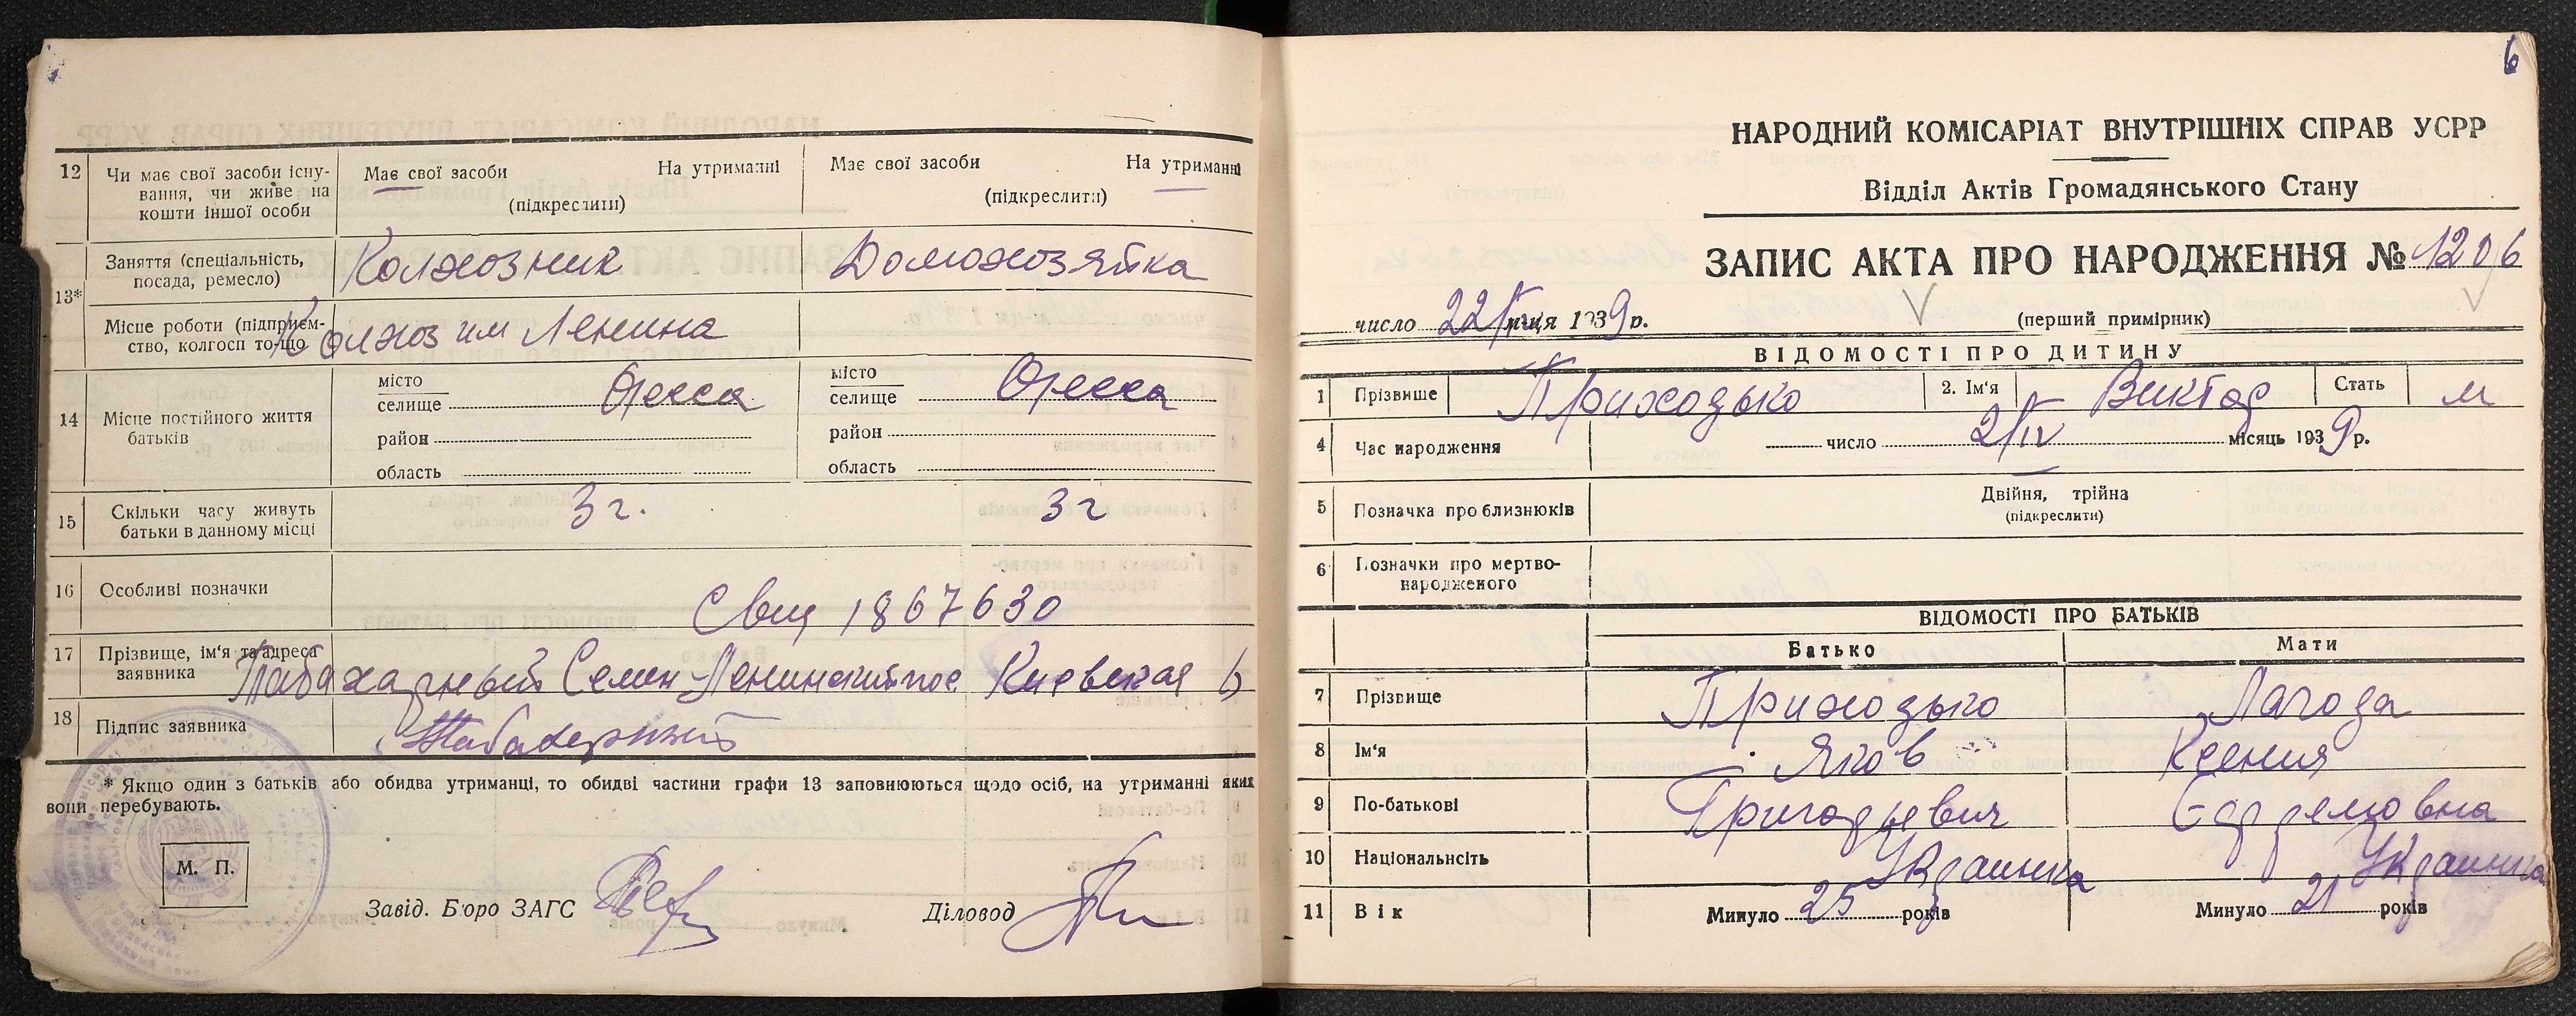 12
Чи має свої засоби існу-
вання, чи живе на
кошти іншої особи
Має свої засоби На утриманні
(підкреслити)
Має свої засоби На утриманні
(підкреслити)
13*
Заняття (спеціальність,
посада, ремесло)
Колхозник
Домохозяйка
Місце роботи (підприєм-
ство, колгосп то-що
Колхоз им Ленина
14
Місце постійного життя
батьків
місто
селище Одесса
район
область
місто
селище Одесса
район
область
15
Скільки часу живуть
батьки в данному місці
3 г.
3 г
16
Особливі позначки
Свид 1867630
17
Прізвище, ім‘я та адреса
заявника
Табахарный Семен Ленинский пос Киевская 6
18
Підпис заявника
* Якщо один з батьків або обидва утриманці, то обидві частини графи 13 заповнюються щодо осіб, на утриманні яких
вони перебувають.
М. П.
Завід. Бюро ЗАГС
Діловод
6
НАРОДНИЙ КОМІСАРІАТ ВНУТРІШНІХ СПРАВ УСРР
Відділ Актів Громадянського Стану
ЗАПИС АКТА ПРО НАРОДЖЕННЯ № 1206
число 22/IV м-ця 1939 р.
(перший примірник)
ВІДОМОСТІ ПРО ДИТИНУ
1 Прізвище Приходько 2. Ім‘я Виктор Стать м
4 Час народження число 2/IV місяць 1939 р.
5 Позначка про близнюків
Двійня, трійна
(підкреслити)
6 Позначки про мертво-
народженого
ВІДОМОСТІ ПРО БАТЬКІВ
Батько Мати
7 Прізвище Приходько Лагода
8 Ім‘я Яков Ксения
9 По-батькові Григорьевич
10 Національнсіть Украинка Украинка
11 Вік Минуло 25 років Минуло 21 років